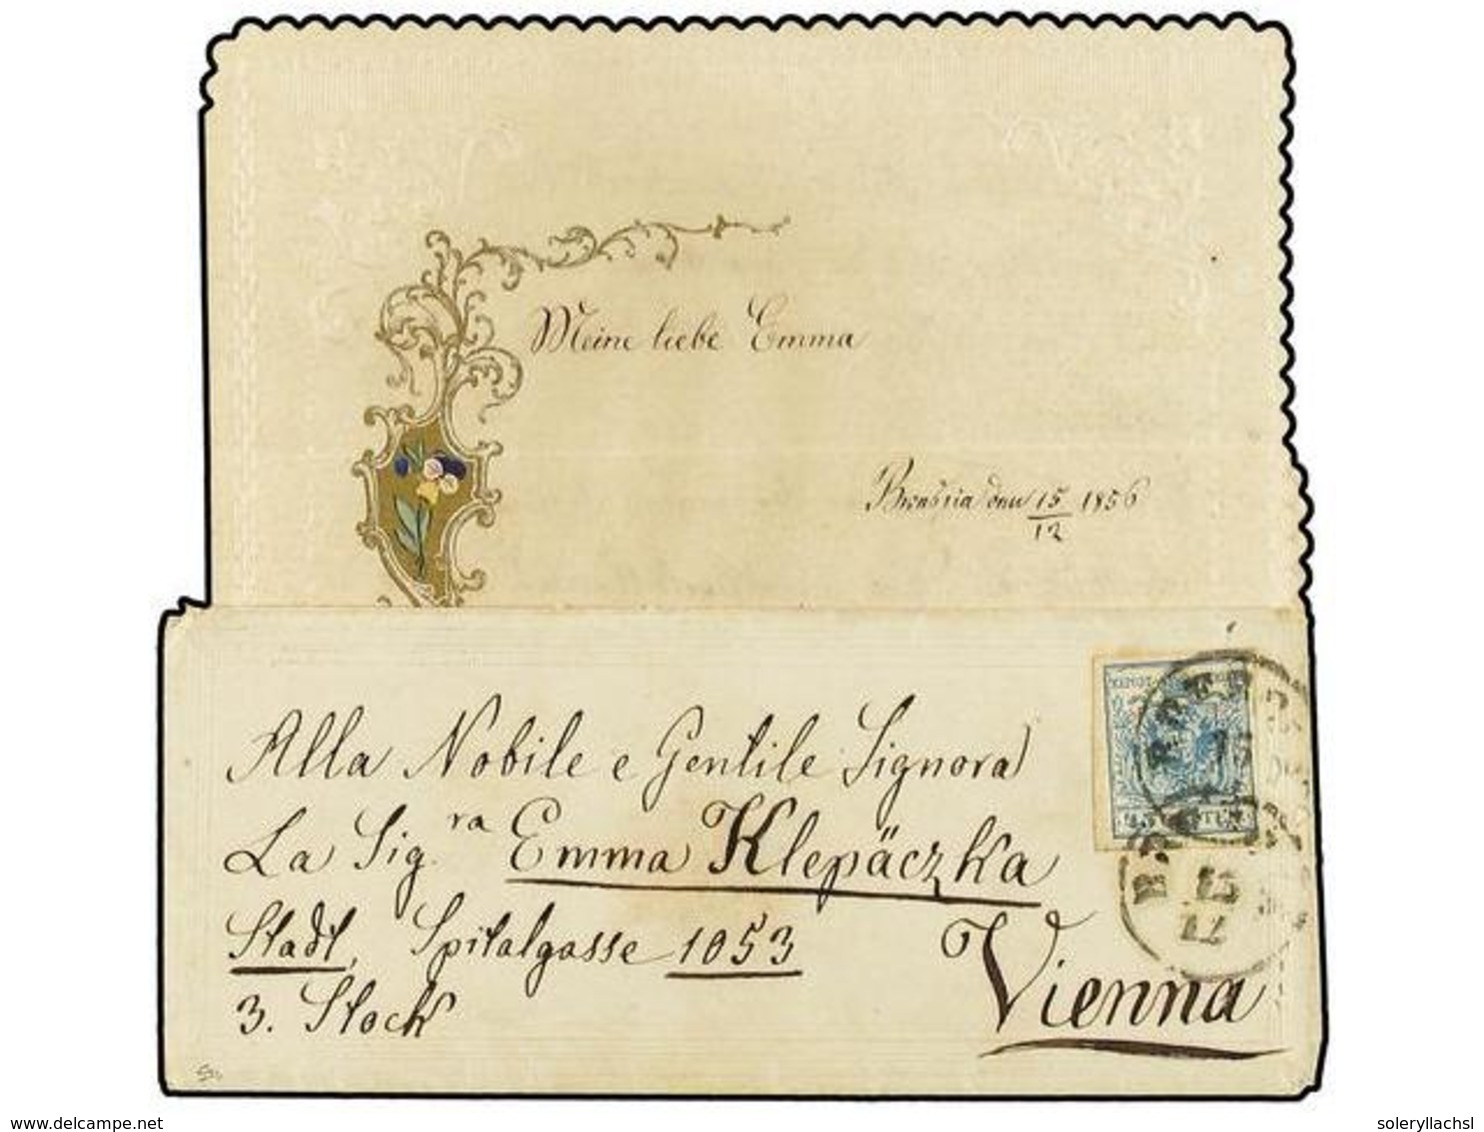 Meine liebe Emma
Brescia den 15/12 1856
Alla Nobile e Gentile Signora
La Sig.ra Emma Klepäczka
Stadt, Spitalgasse 1053
3. Stock
Vienna
45 CENTES
www.delcampe.net
soleryllachsl